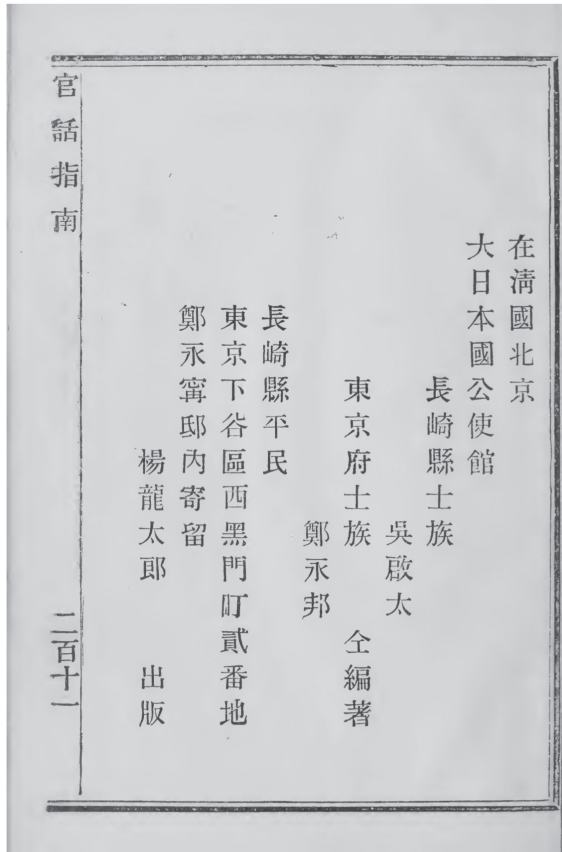 在淸國北京
大日本國公使館
長崎縣士族
吳啟太
東京府士族 仝編著
鄭永邦
長崎縣平民
東京下谷區西黑門町貳番地
鄭永寗邸內寄留
楊龍太郎 出版
官話指南
二百十一